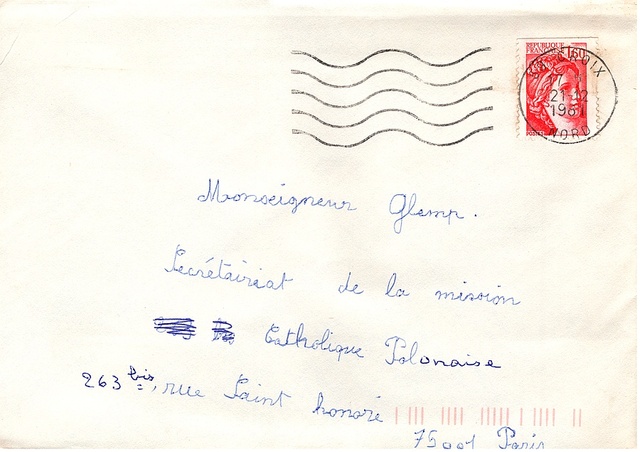 REPUBLIQUE
FRANCAISE 1,60
CROIX
21-12
1981
NORD
Monseigneur Glemp.
Secrétairiat de la mission
Catholique Polonaise
263 bis, rue Saint honoré
75001 Paris